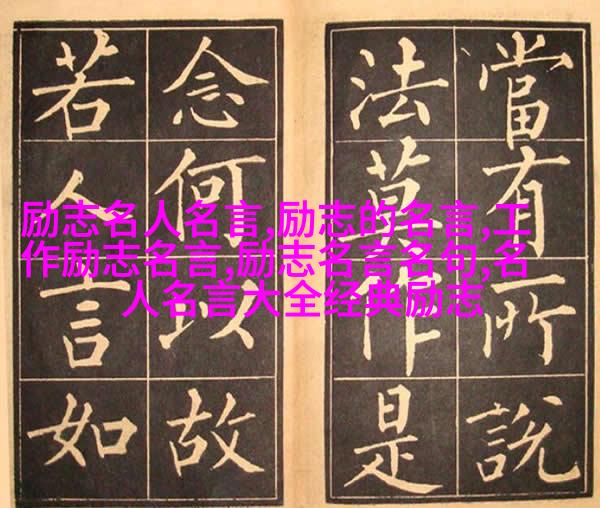 當有所說
法莫作是
念何以故
若人言如
励志名人名言,励志的名言,工
作励志名言,励志名言名句,名
人名言大全经典励志